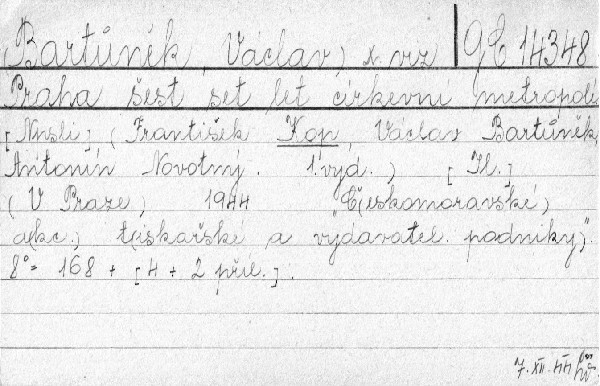 Bartůněk, Václav, n. vrz GE 14348
Praha šest set let církevní metropolí
[Naps.] (František Kop, Václav Bartůněk,
Antonín Novotný. 1. vyd.) [Il.]
(V Praze) 1944 "Č(eskomoravské)
a(kc.) t(iskařské a vydavatel. podniky)".
8° 168 + [4 + 2 příl.].
7. XII. 44